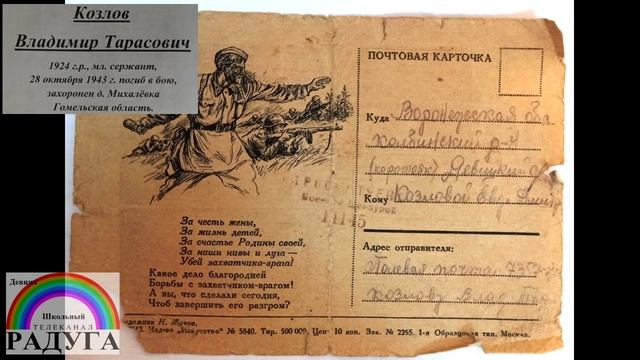 Козлов
Владимир Тарасович
1924 г.р., мл. сержант,
28 октября 1943 г. погиб в бою,
захоронен д. Михалёвка
Гомельская область.
ПОЧТОВАЯ КАРТОЧКА
Куда Воронежская
(коротояк) Девицкий
Кому Козловой
Адрес отправителя:
Полевая почта
Козлову
За честь жены,
За жизнь детей,
За счастье Родины своей,
За наши нивы и луга —
Убей захватчика-врага!
Какое дело благородней
Борьбы с захватчиком-врагом!
А вы, что сделали сегодня,
Чтоб завершить его разгром?
Художник Н. Жуков.
"Искусство" № 5840. Тир. 500 000. Цена 10 коп. Зак. № 2255. 1-я Образцовая тип. Москва.
Девица
Школьный
ТЕЛЕКАНАЛ
РАДУГА